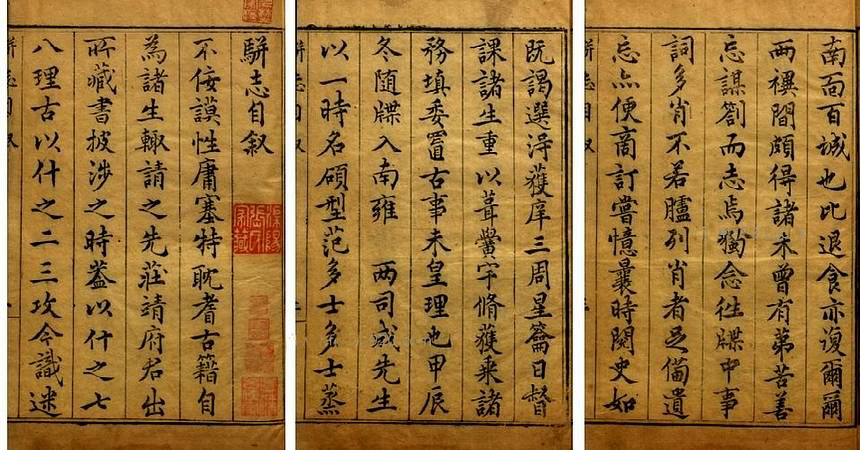 駢志自叙
不佞謨性庸塞特耽耆古籍自
為諸生輙請之先莊靖府君出
所藏書披涉之時盖以什之七
八理古以什之二三攻今識迷
既謁選淂獲庠三周星籥日督
課諸生重以葺黌宇脩獲乗諸
務填委置古事未皇理也甲辰
冬随牒入南雍 两司成先生
以一時名碩型范多士多士蒸
南面百城也比退食亦復爾爾
两禩間頗得諸未曾有苐苦善
忘謀劄而志焉獨念徃牒中事
詞多肖不若臚列肖者足俻遺
忘亦便商訂嘗憶曩時閱史如